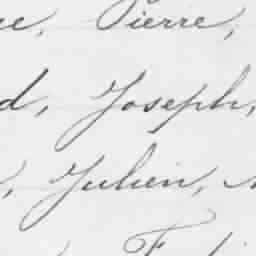 Pierre,
Joseph,
Julien,